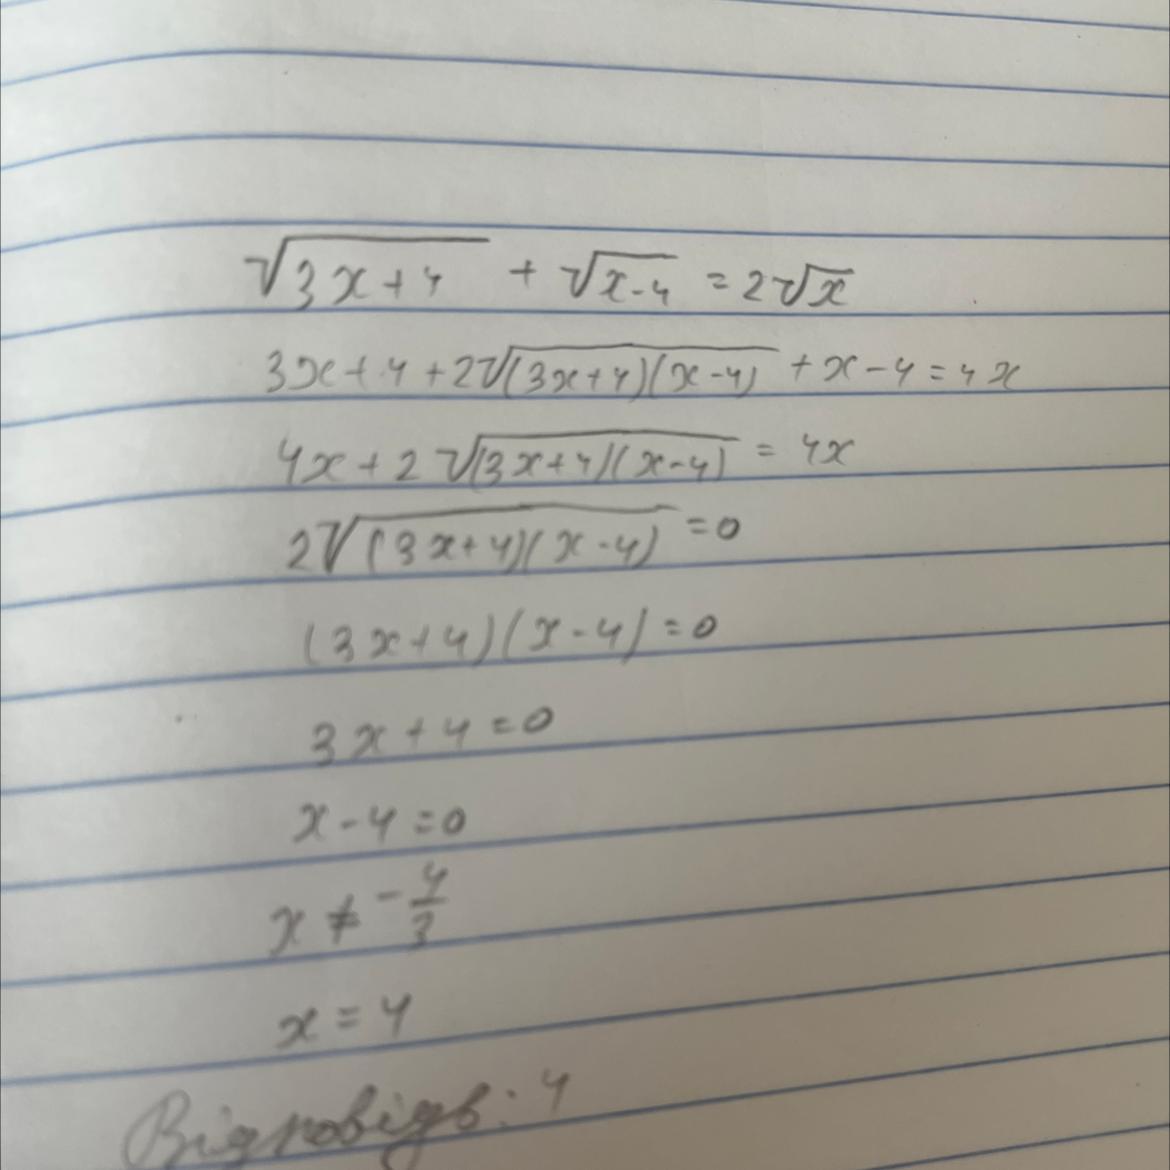 √(3x+4) + √(x-4) = 2√x
3x+4+2√((3x+4)(x-4)) + x-4 = 4x
4x+2√((3x+4)(x-4)) = 4x
2√((3x+4)(x-4)) = 0
(3x+4)(x-4) = 0
3x+4=0
x-4=0
x ≠ -4/3
x = 4
Відповідь: 4